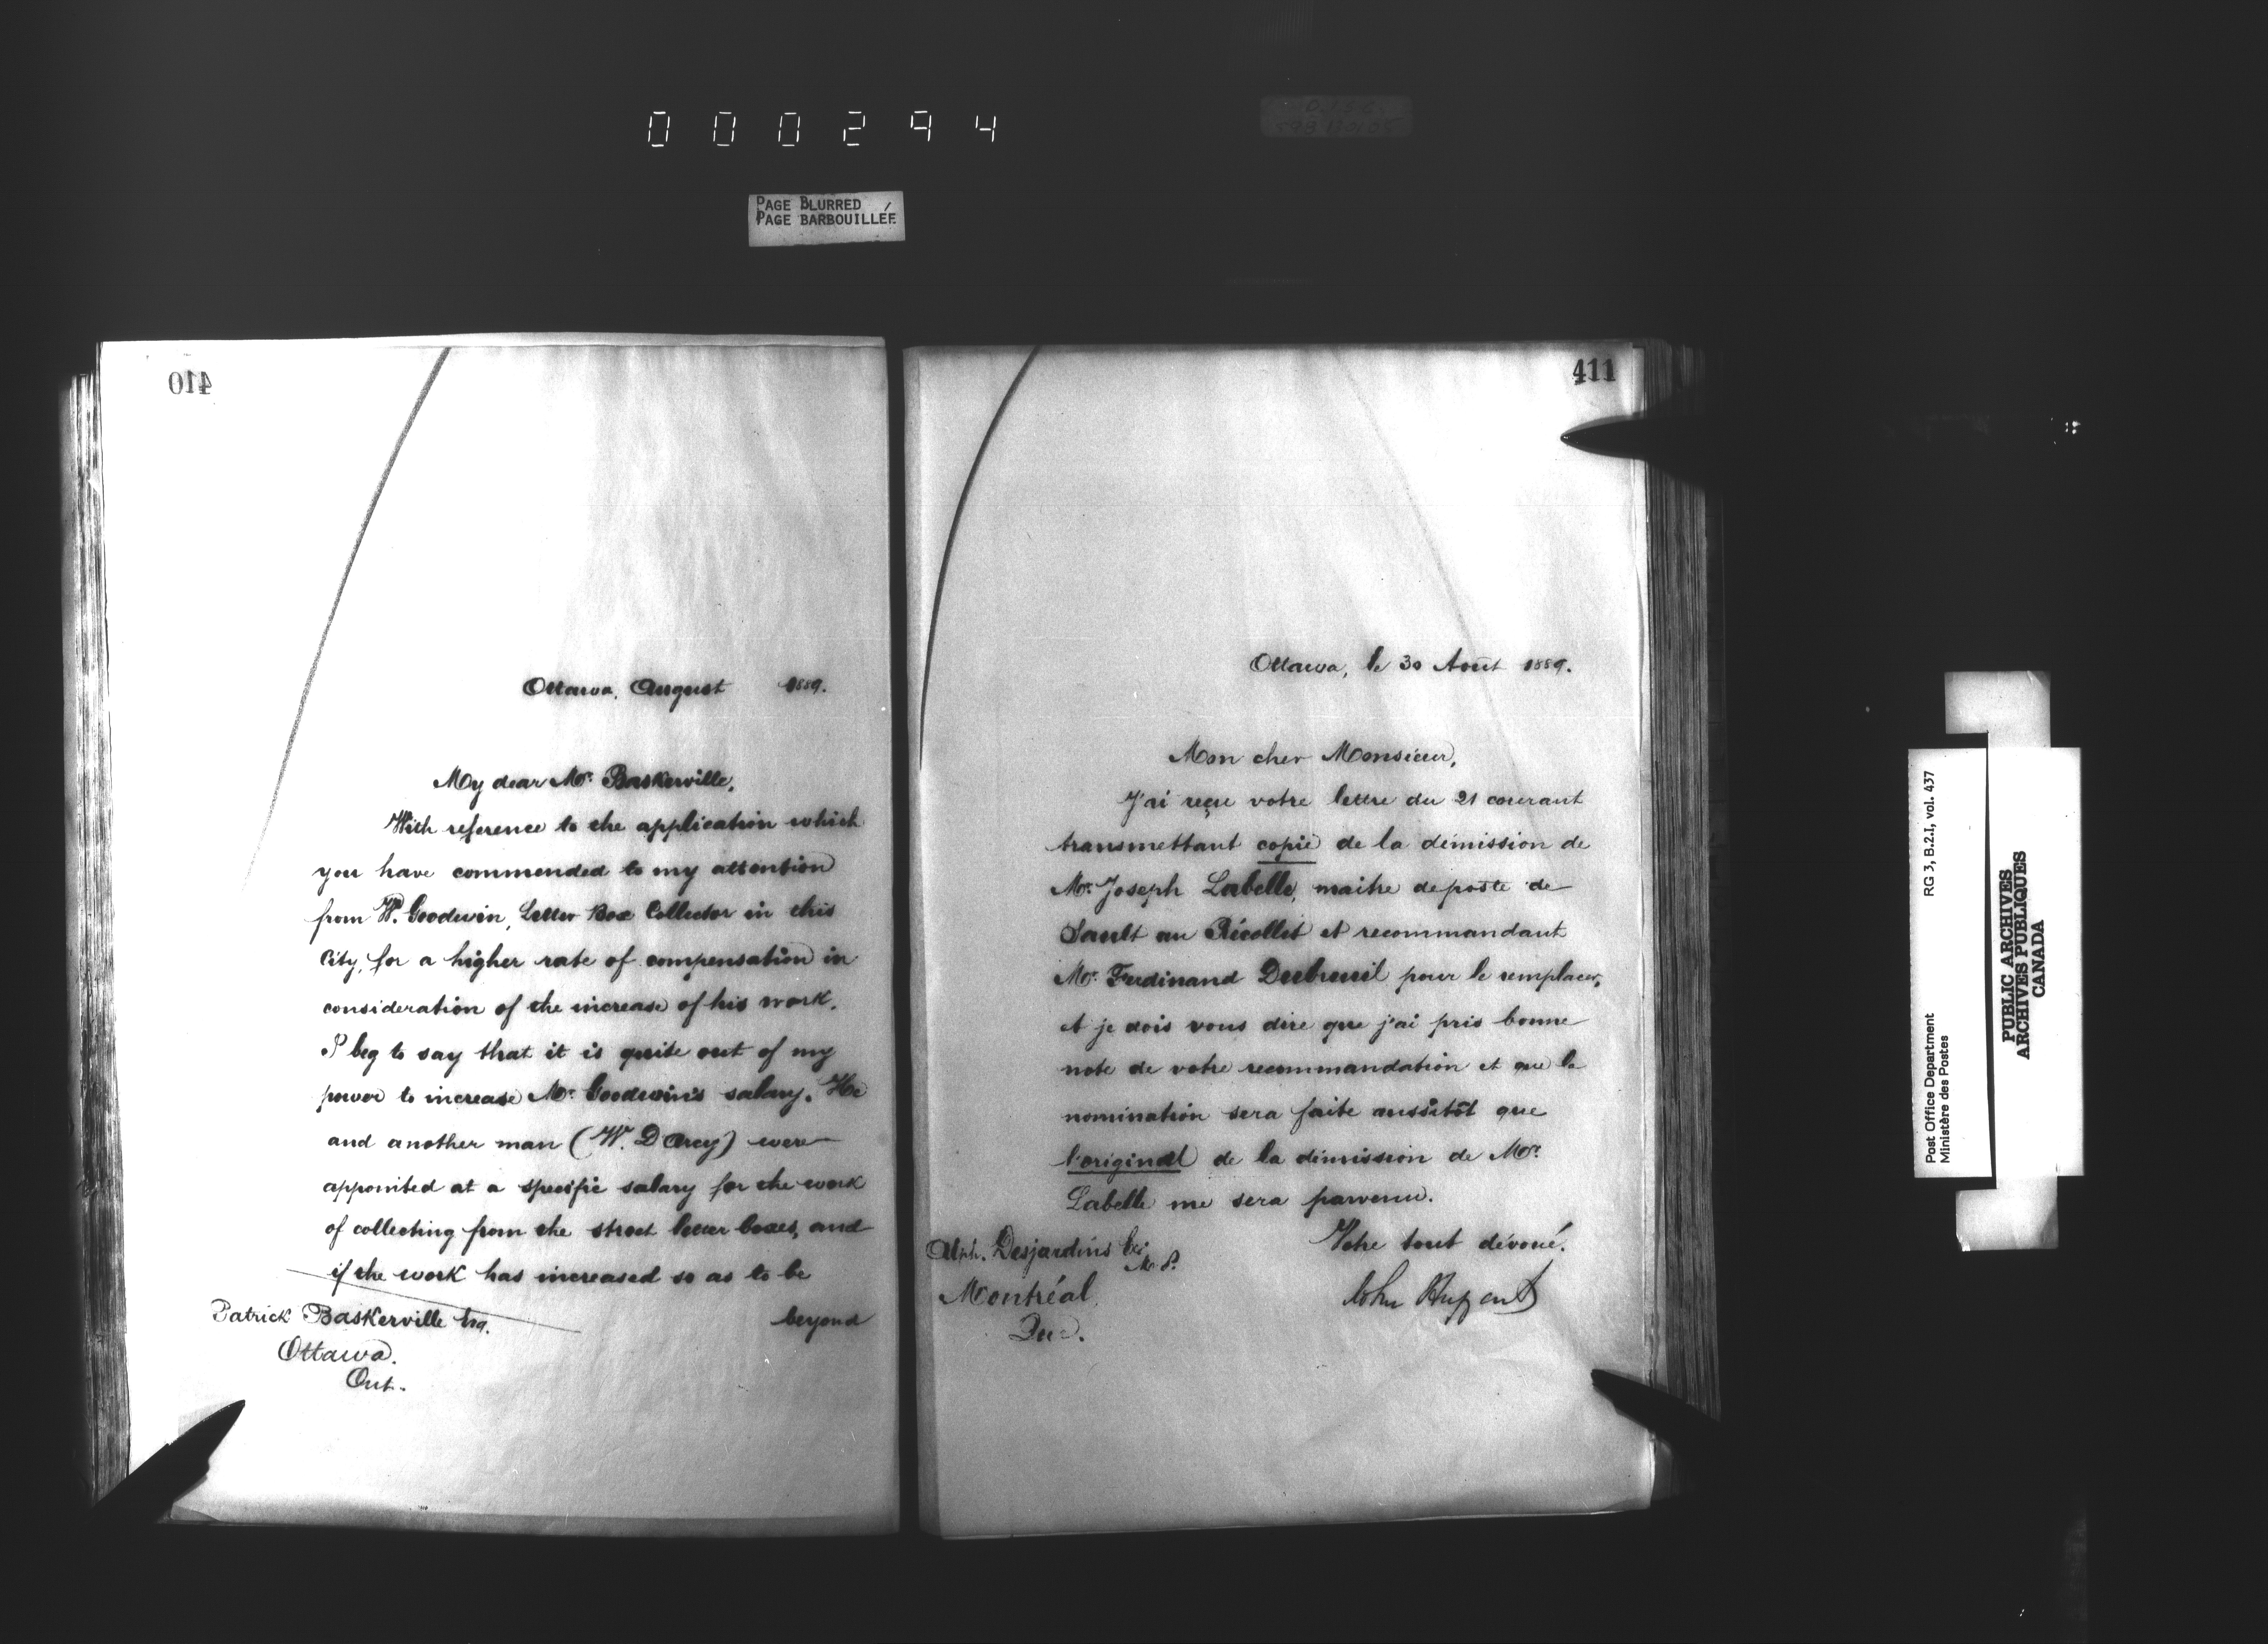 000294
PAGE BLURRED
PAGE BARBOUILLÉE
410
Ottawa, August 1889.
My dear Mr. Baskerville,
With reference to the application which
you have commended to my attention
from W. Goodwin, Letter Box Collector in this
City, for a higher rate of compensation in
consideration of the increase of his work.
I beg to say that it is quite out of my
power to increase Mr. Goodwin's salary. He
and another man (W. D'Arcy) were
appointed at a specific salary for the work
of collecting from the street letter boxes, and
if the work has increased so as to be
beyond
Patrick Baskerville Esq.
Ottawa.
Ont.
411
Ottawa, le 30 Août 1889.
Mon cher Monsieur,
J'ai reçu votre lettre du 21 courant
transmettant copie de la démission de
Mr. Joseph Labelle, maitre de poste de
Sault au Récollet et recommandant
Mr. Ferdinand Dubreuil pour le remplacer,
et je dois vous dire que j'ai pris bonne
note de votre recommandation et que la
nomination sera faite aussitôt que
l'original de la démission de Mr.
Labelle me sera parvenu.
Votre tout dévoué.
Alph. Desjardins
M.P.
Montréal,
Que.
RG 3, B.2.I, vol. 437
Post Office Department
Ministère des Postes
PUBLIC ARCHIVES
ARCHIVES PUBLIQUES
CANADA